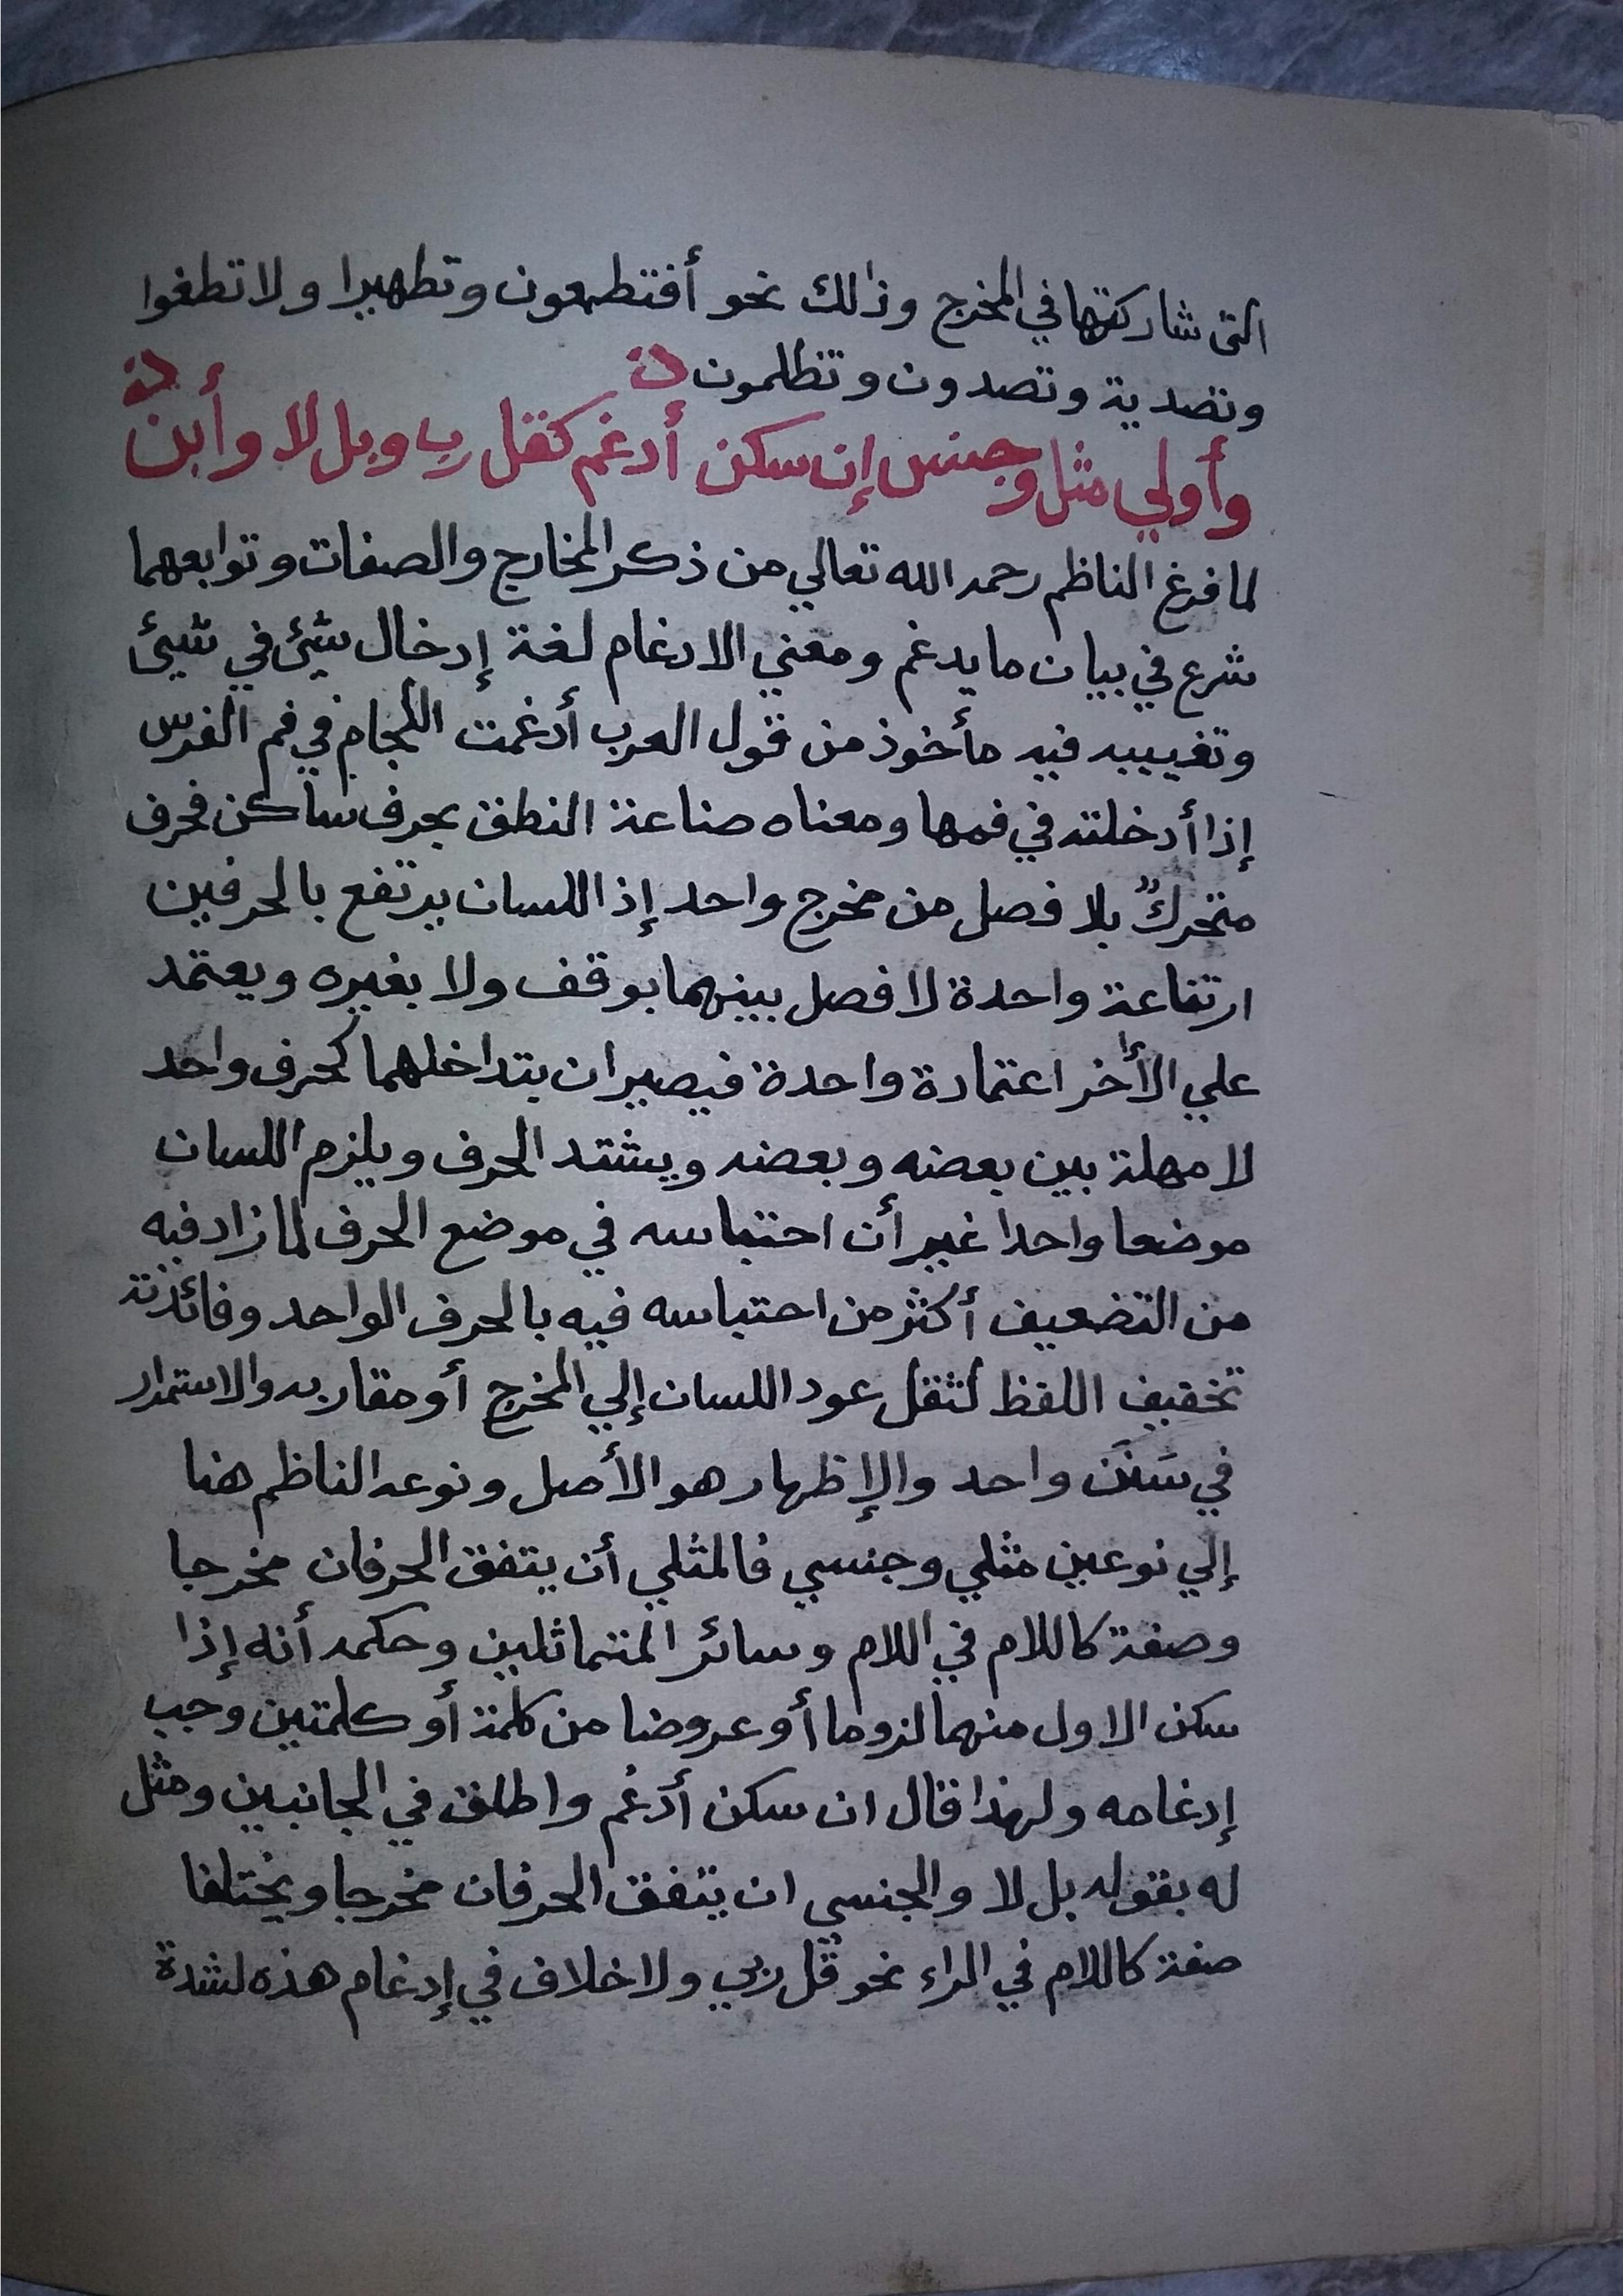 التى شاركتها في المخرج وذلك نحو أفتطمعون وتطهيرا ولا تطغوا
وتصدية وتصدون وتظلمون
وأولي مثل وجنس إن سكن أدغم كقل رب وبل لا وأبن
لما فرغ الناظم رحمه الله تعالي من ذكر المخارج والصفات وتوابعهما
شرع في بيان ما يدغم ومعني الادغام لغة إدخال شيئ في شيئ
وتغييبه فيه مأخوذ من قول العرب أدغمت اللجام في فم الفرس
إذا أدخلته في فمها ومعناه صناعة النطق بحرف ساكن فحرف
متحرك بلا فصل من مخرج واحد إذ اللسان يرتفع بالحرفين
ارتفاعة واحدة لا فصل بينهما بوقف ولا بغيره ويعتمد
علي الأخر اعتمادة واحدة فيصيران بتداخلهما كحرف واحد
لا مهلة بين بعضه وبعضه ويشتد الحرف ويلزم اللسان
موضعا واحدا غير أن احتباسه في موضع الحرف لما زاد فيه
من التضعيف أكثر من احتباسه فيه بالحرف الواحد وفائدته
تخفيف اللفظ لثقل عود اللسان إلي المخرج أو مقاربه والاستمرار
في سَنَن واحد والإظهار هو الأصل ونوعه الناظم هنا
إلي نوعين مثلي وجنسي فالمثلي أن يتفق الحرفان مخرجا
وصفة كاللام في اللام وسائر المتماثلين وحكمه أنه إذا
سكن الاول منهما لزوما أو عروضا من كلمة أو كلمتين وجب
إدغامه ولهذا قال ان سكن أدغم واطلق في الجانبين ومثل
له بقوله بل لا والجنسي ان يتفق الحرفان مخرجا ويختلفا
صفة كاللام في الراء نحو قُل ربي ولا خلاف في إدغام هذه لشدة